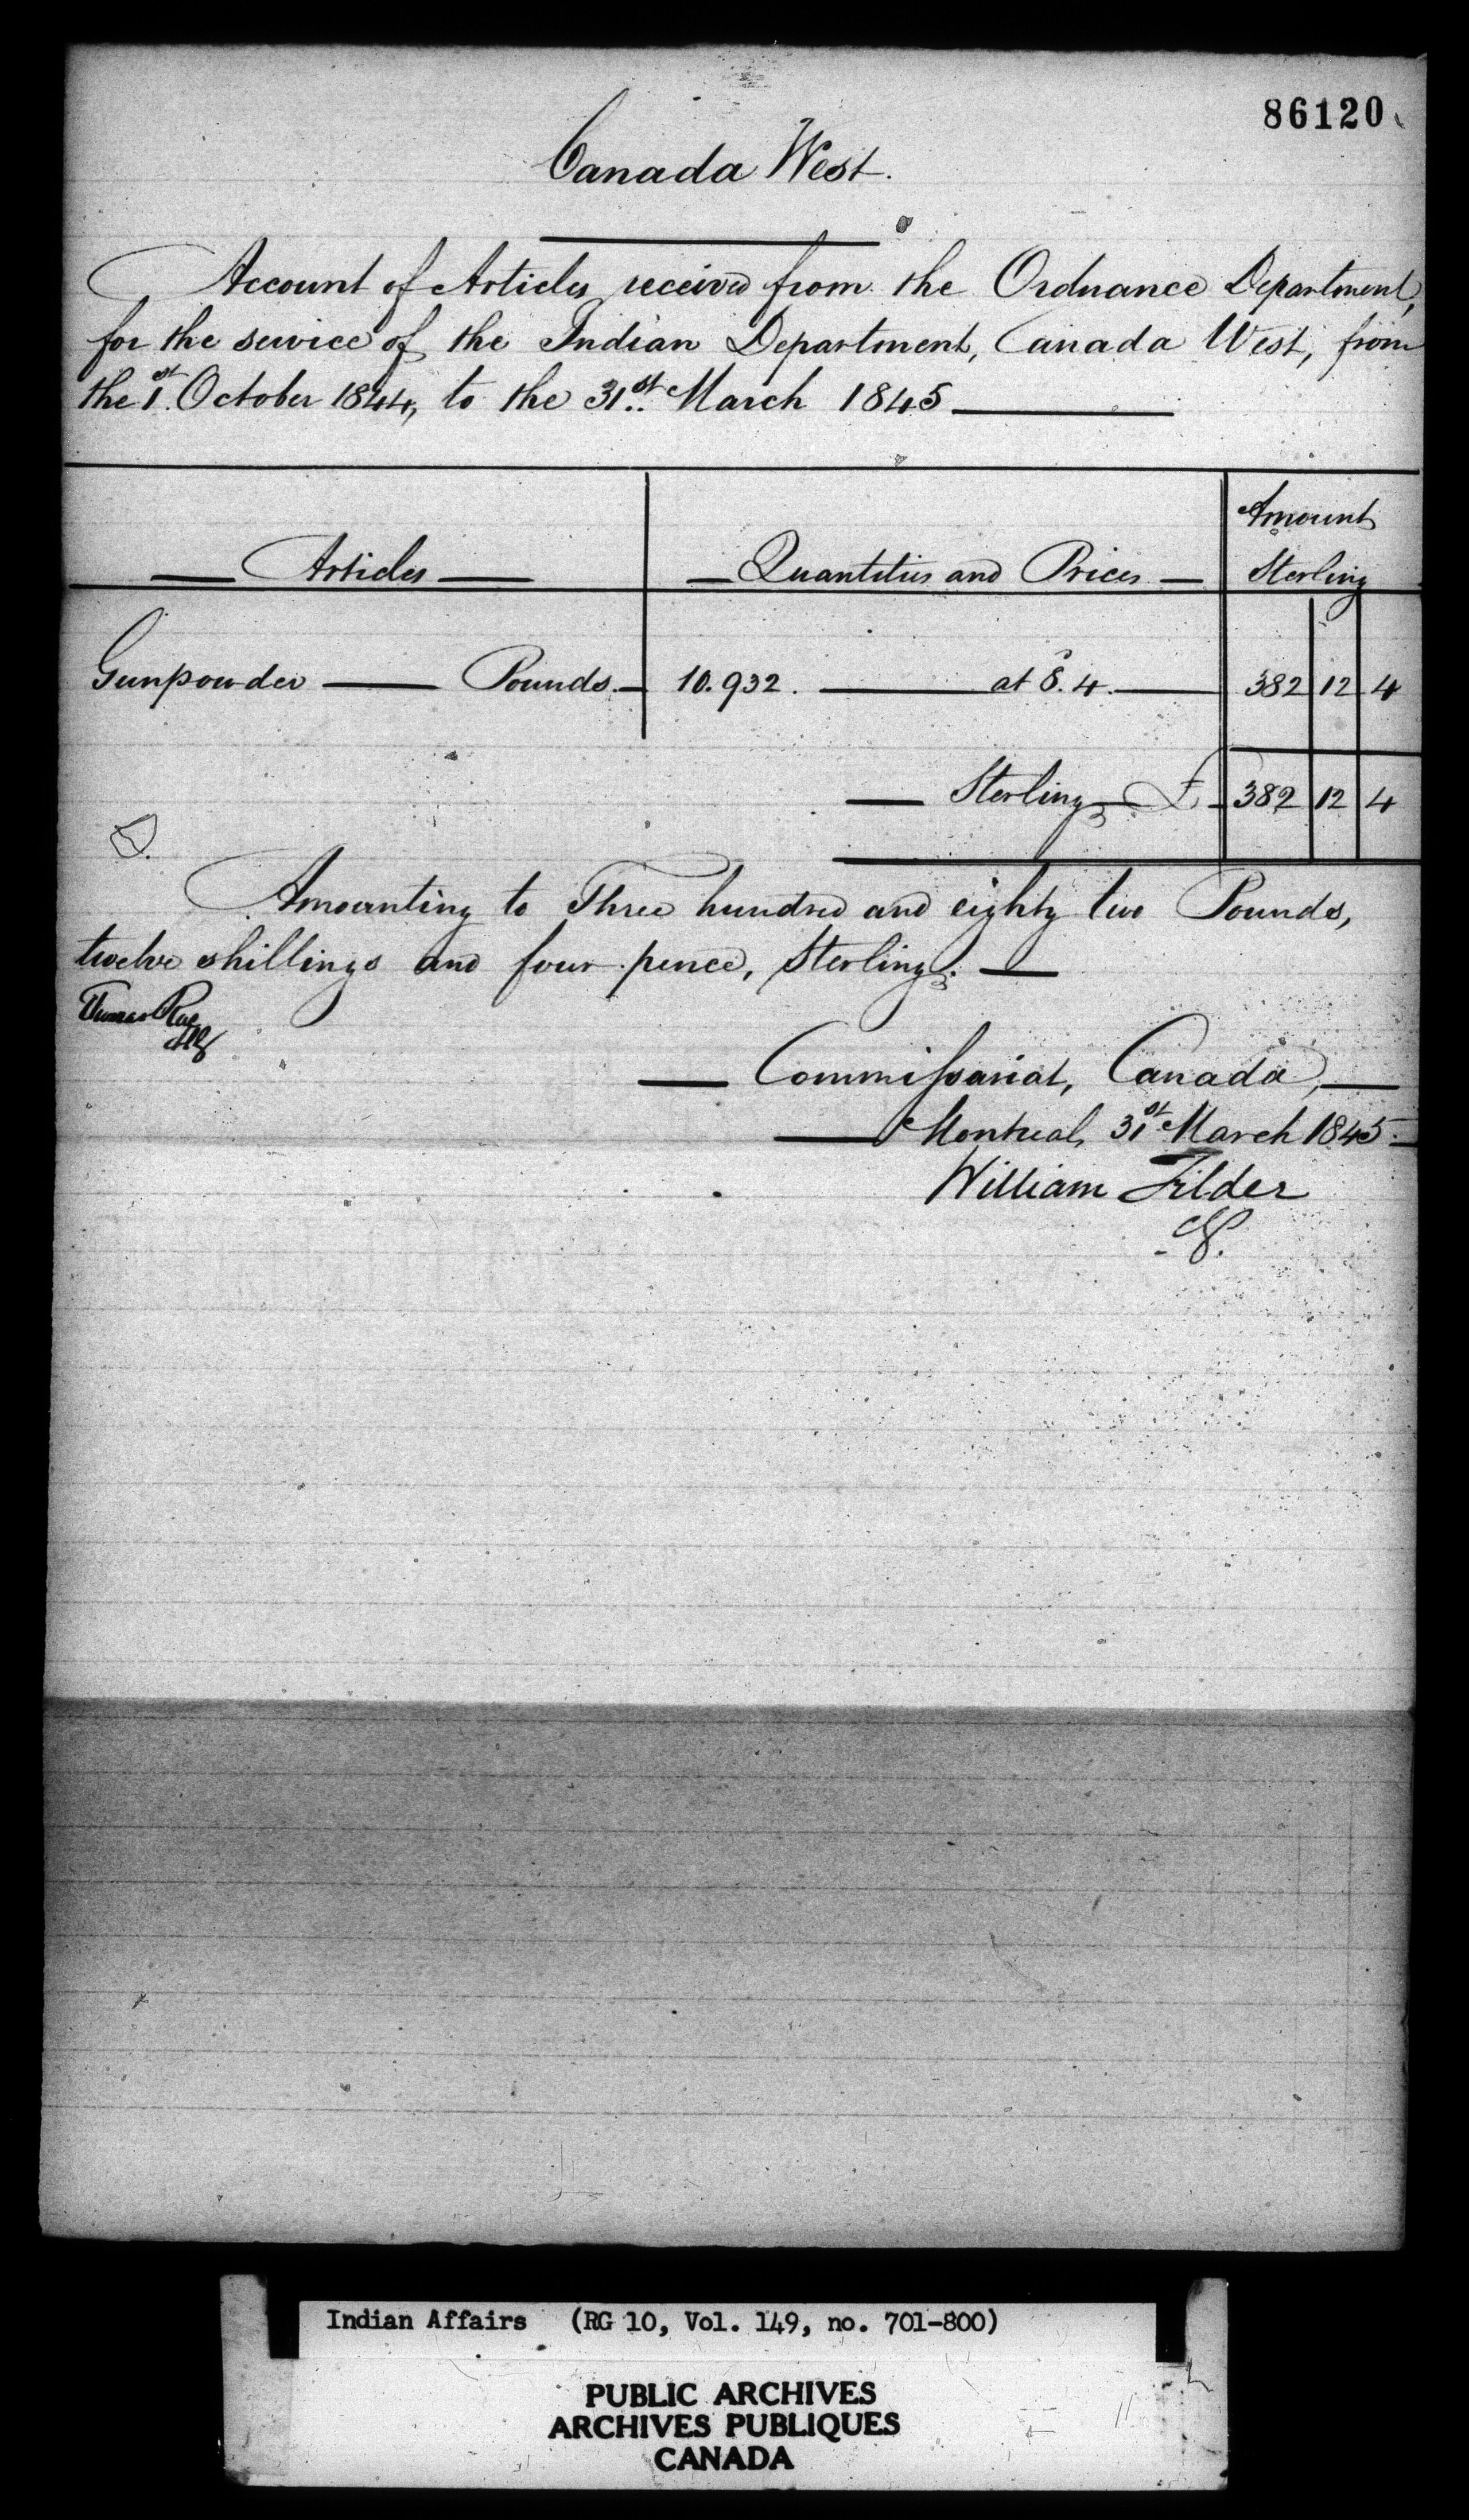 86120
Canada West.
Account of Articles received from the Ordnance Department,
for the service of the Indian Department, Canada West, from
the 1st October 1844, to the 31st March 1845
Articles Quantities and Prices Amount Sterling
Gunpowder Pounds 10.932. at 8.4. 382 12 4
Sterling £ 382 12 4
Amounting to Three hundred and eighty two Pounds,
twelve shillings and four pence, Sterling.
Thomas Rae
Commissariat, Canada,
Montreal, 31st March 1845.
William Filder
Indian Affairs (RG 10, Vol. 149, no. 701-800)
PUBLIC ARCHIVES
ARCHIVES PUBLIQUES
CANADA